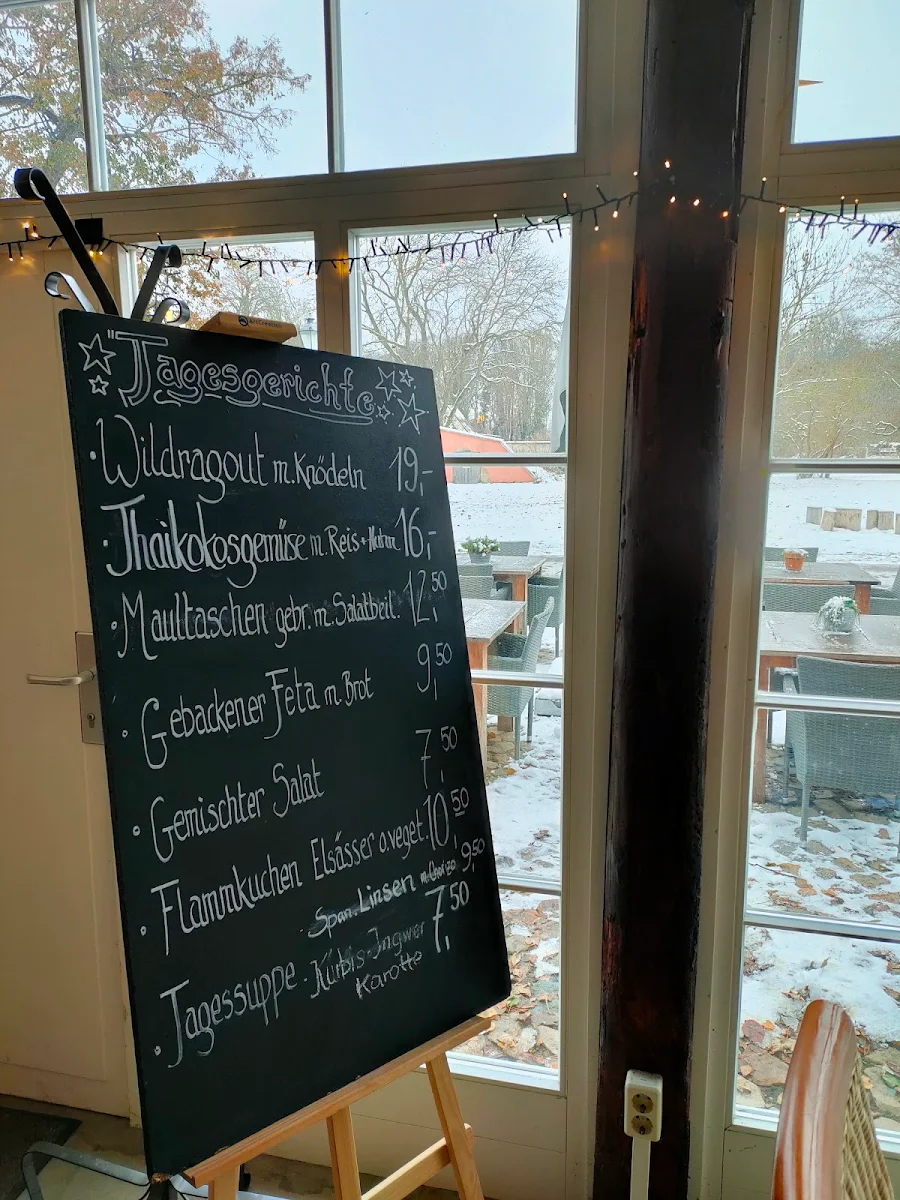 "Tagesgerichte
Wildragout m. Knödeln 19,-
Thaikokosgemüse m. Reis + Huhn 16,-
Maultaschen gebr. m. Salatbeil. 12,50
Gebackener Feta m. Brot 9,50
Gemischter Salat 7,50
Flammkuchen Elsässer o. veget. 10,50
Span. Linsen m. Chorizo 9,50
Tagessuppe - Kürbis-Ingwer 7,50
Karotte